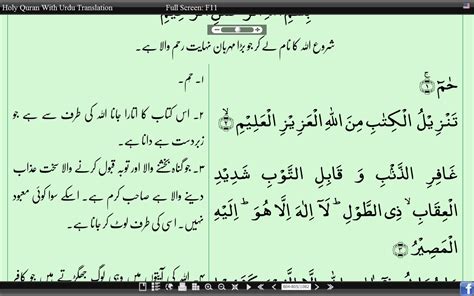 Holy Quran With Urdu Translation Full Screen: F11
شروع اللہ کا نام لے کر جو بڑا مہربان نہایت رحم والا ہے۔
حٰمٓ ۚ﴿۱﴾
تَنْزِیْلُ الْكِتٰبِ مِنَ اللّٰهِ الْعَزِیْزِ الْعَلِیْمِ ۙ﴿۲﴾
غَافِرِ الذَّنْۢبِ وَ قَابِلِ التَّوْبِ شَدِیْدِ
الْعِقَابِ ۙ ذِی الطَّوْلِ ؕ لَاۤ اِلٰهَ اِلَّا هُوَ ؕ اِلَیْهِ
الْمَصِیْرُ ﴿۳﴾
۱۔ حٰم۔
۲۔ اس کتاب کا اتارا جانا اللہ کی طرف سے ہے جو
زبردست ہے دانا ہے۔
۳۔ جو گناہ بخشنے والا اور توبہ قبول کرنے والا ہے سخت عذاب
دینے والا ہے صاحب کرم ہے۔ اسکے سوا کوئی معبود
نہیں۔ اسی کی طرف لوٹ کر جانا ہے۔
۴۔ اللہ کی آیتوں میں وہی لوگ جھگڑتے ہیں جو کافر